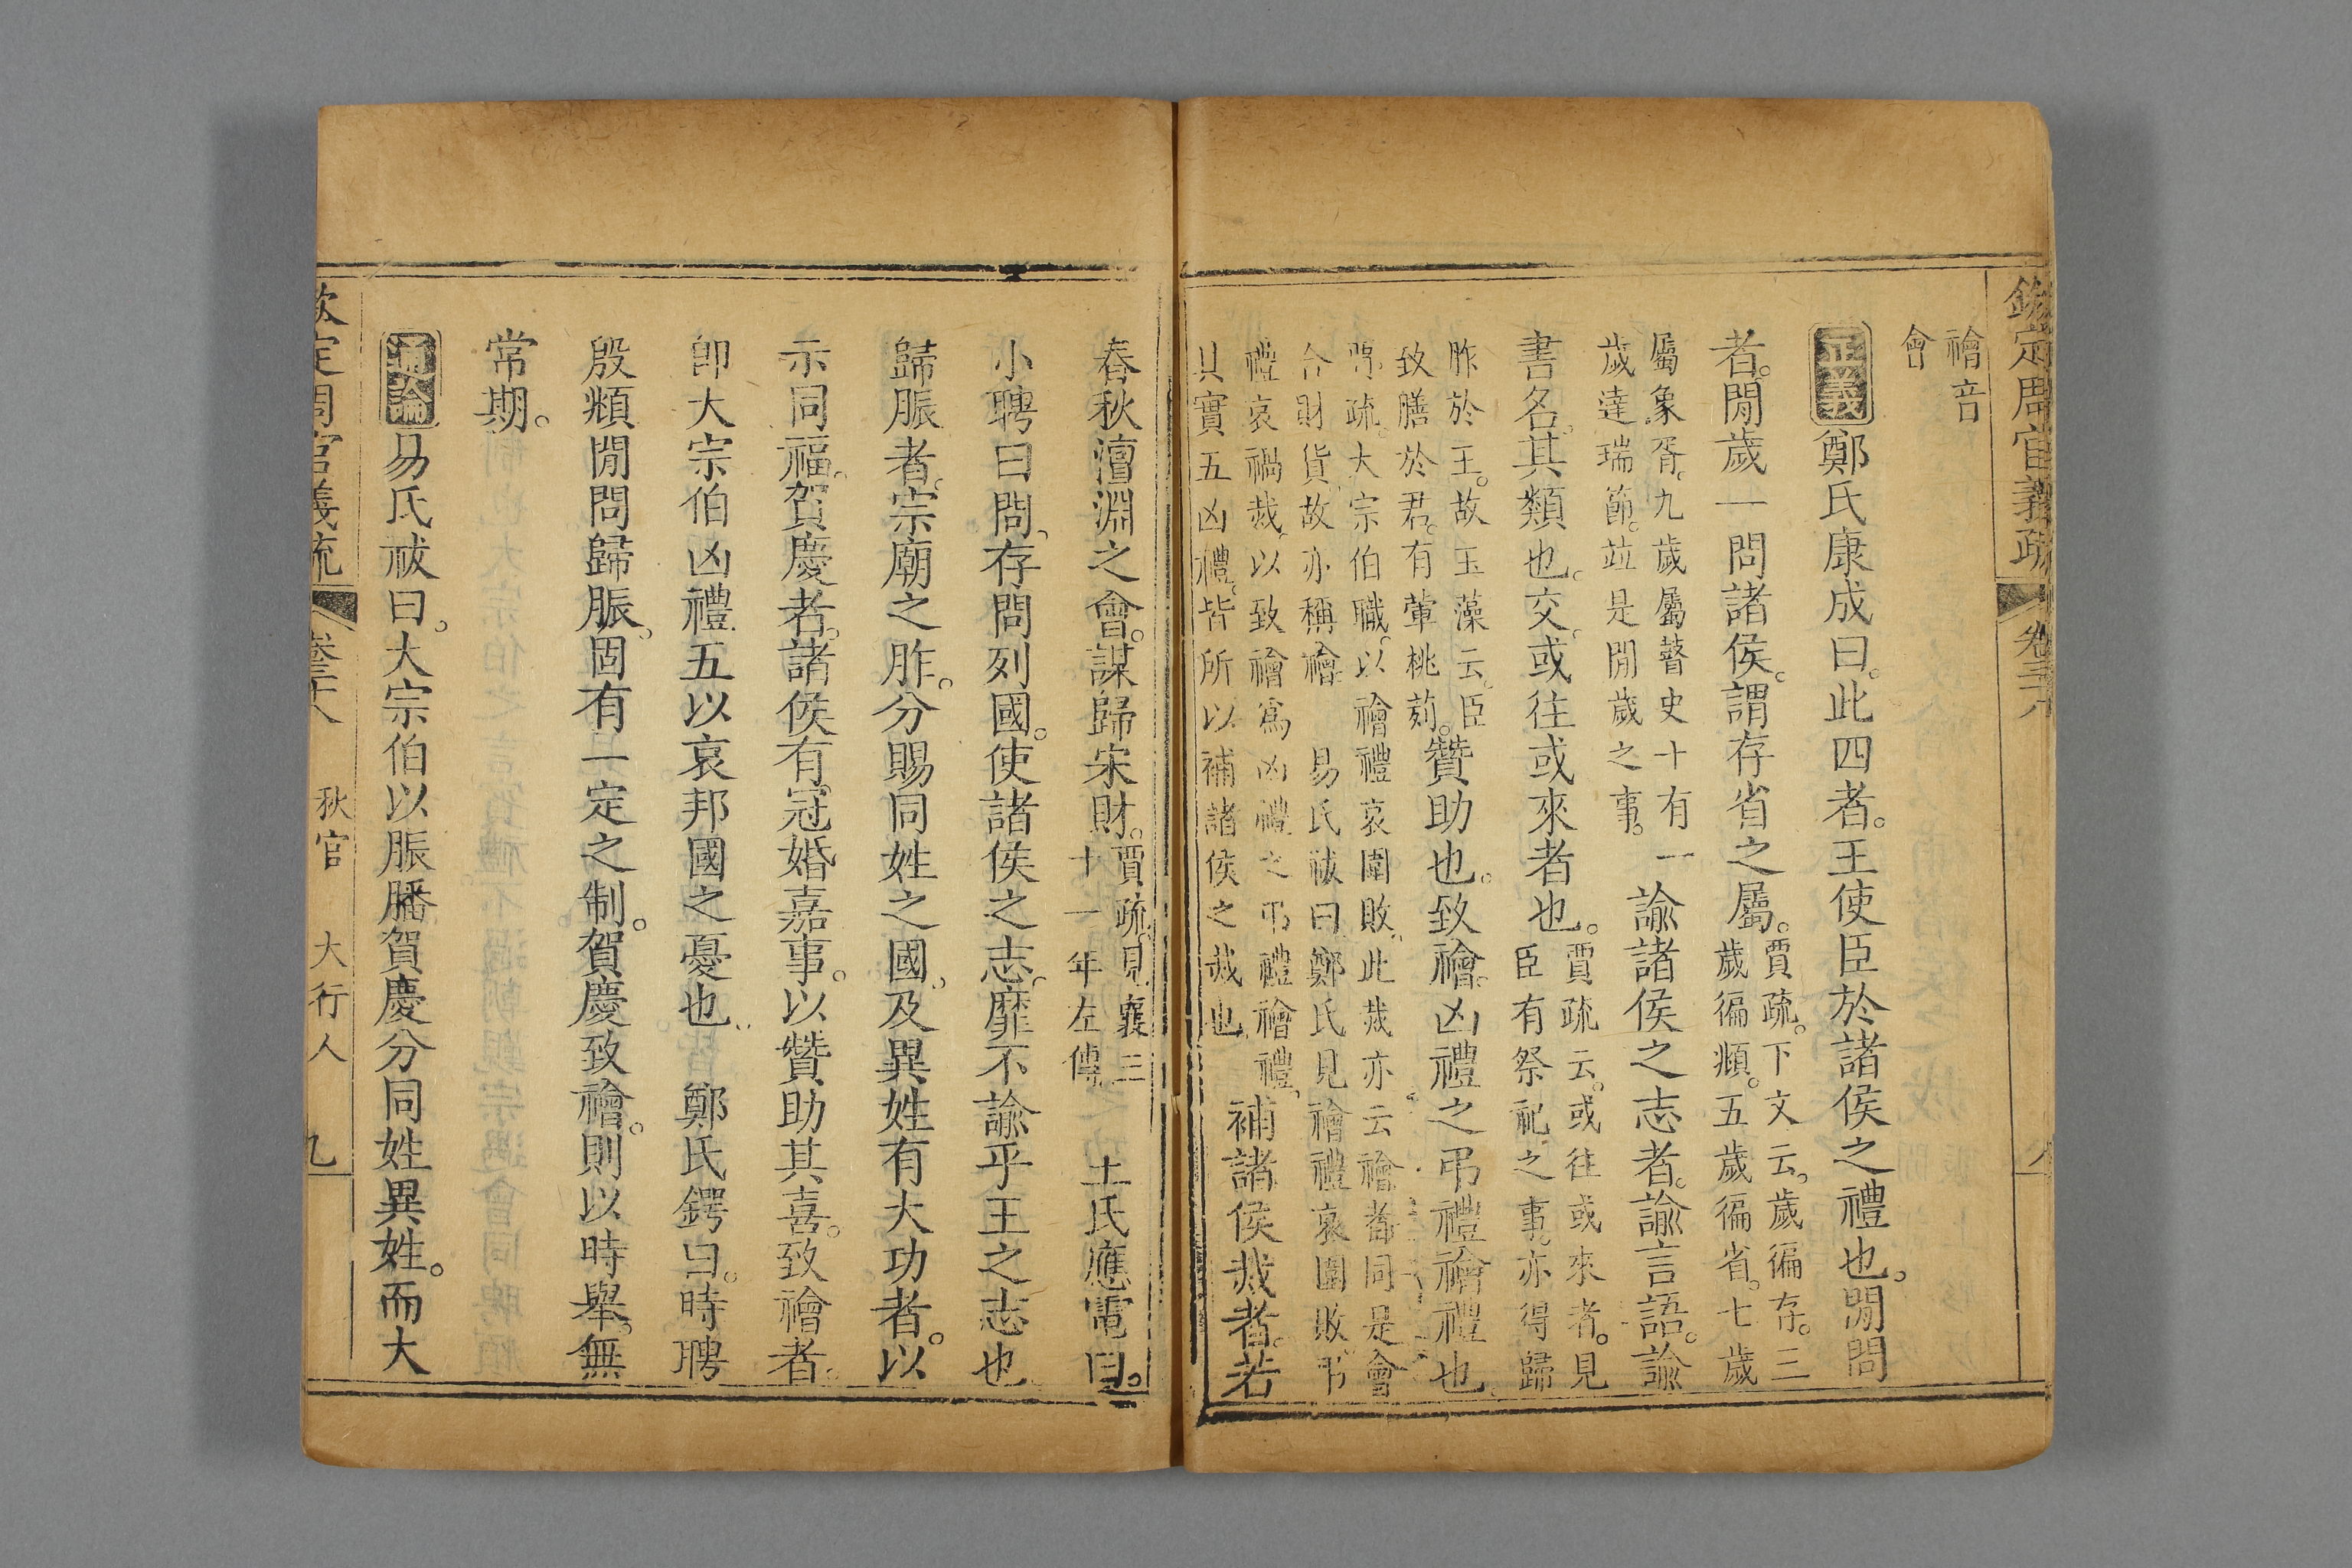 欽定周官義疏 卷三十八 八
禬音
會
正義 鄭氏康成曰。此四者。王使臣於諸侯之禮也。閒問
者。閒歲一問諸侯。謂存省之屬。
賈疏。下文云。歲徧存。三
歲徧頫。五歲徧省。七歲
屬象胥。九歲屬瞽史十有一
歲達瑞節。竝是閒歲之事。
諭諸侯之志者。諭言語。諭
書名。其類也。交。或往或來者也。
賈疏云。或往或來者。見
臣有祭祀之事。亦得歸
胙於王。故玉藻云。臣
致膳於君。有葷桃茢。
贊助也。致禬。凶禮之弔禮禬禮也。
賈疏。大宗伯職。以禬禮哀圍敗。此烖亦云禬者。同是會
合財貨。故亦稱禬 易氏祓曰。鄭氏見禬禮哀圍敗。弔
禮哀禍烖。以致禬爲凶禮之弔禮禬禮。
其實五凶禮。皆所以補諸侯之烖也。
補諸侯烖者。若
春秋澶淵之會。謀歸宋財。
賈疏。見襄三
十一年左傳。
王氏應電曰。
小聘曰問。存問列國。使諸侯之志。靡不諭乎王之志也
歸脤者。宗廟之胙。分賜同姓之國。及異姓有大功者。以
示同福。賀慶者。諸侯有冠婚嘉事。以贊助其喜。致禬者。
卽大宗伯凶禮五以哀邦國之憂也。 鄭氏鍔曰。時聘
殷頫閒問歸脤。固有一定之制。賀慶致禬。則以時舉。無
常期。
通論 易氏祓曰。大宗伯以脤膰賀慶分同姓異姓。而大
欽定周官義疏 卷三十八 秋官 大行人 九